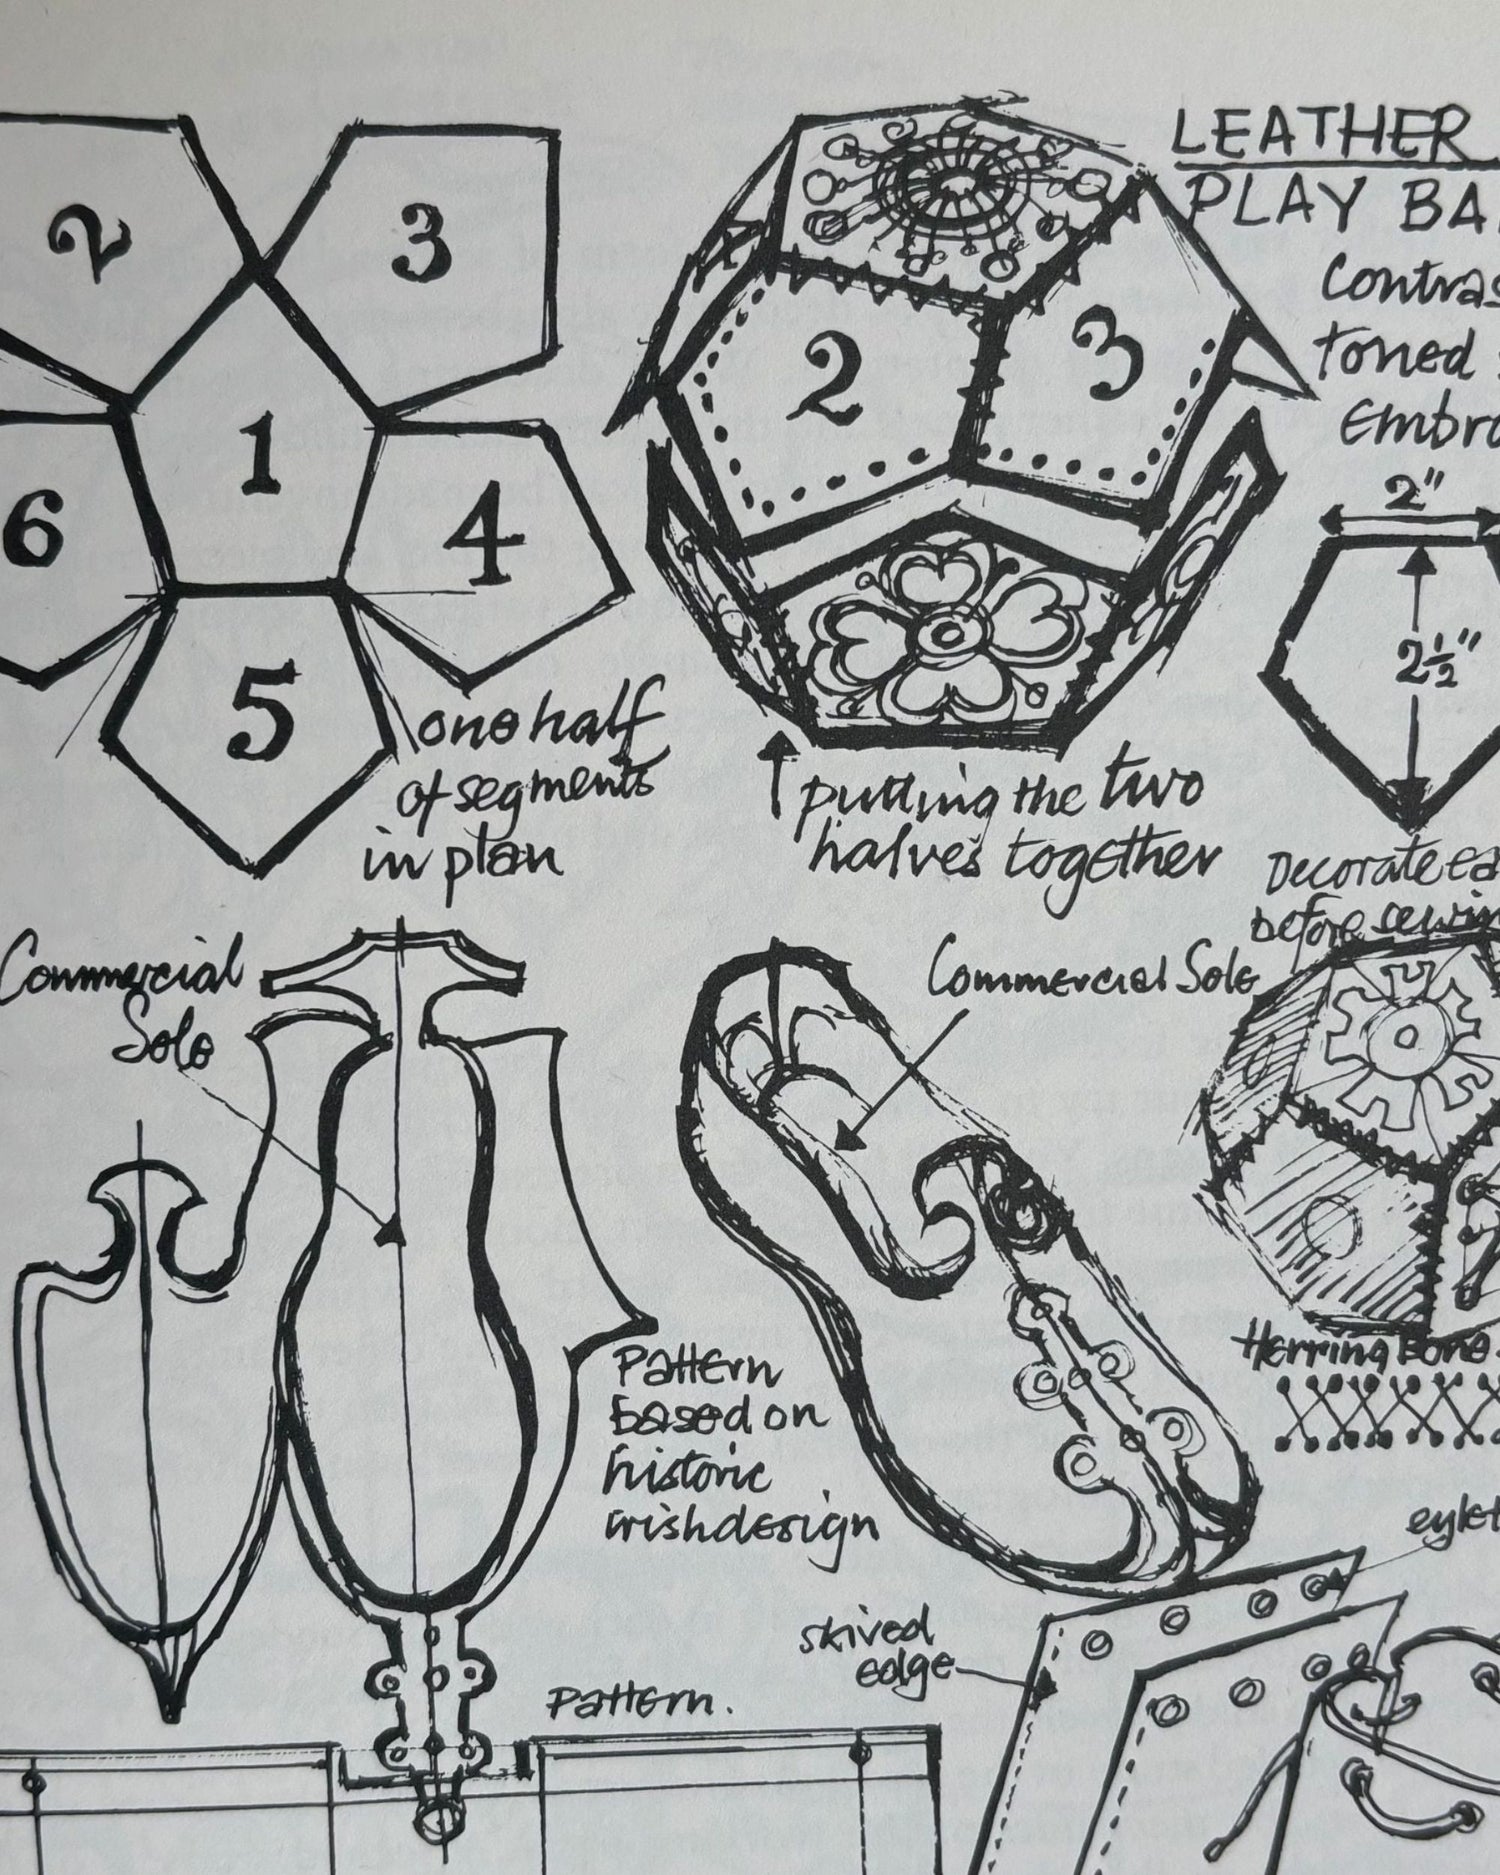 2
3
1
6
4
5
one half
of segments
in plan
2
3
putting the two
halves together
LEATHER
PLAY BA
Contras
toned
Embro
2"
2½"
Decorate ea
before sewin
Commercial
Sole
Commercial Sole
Pattern
based on
historic
irish design
Herring Bone
eylet
skived
edge
Pattern.